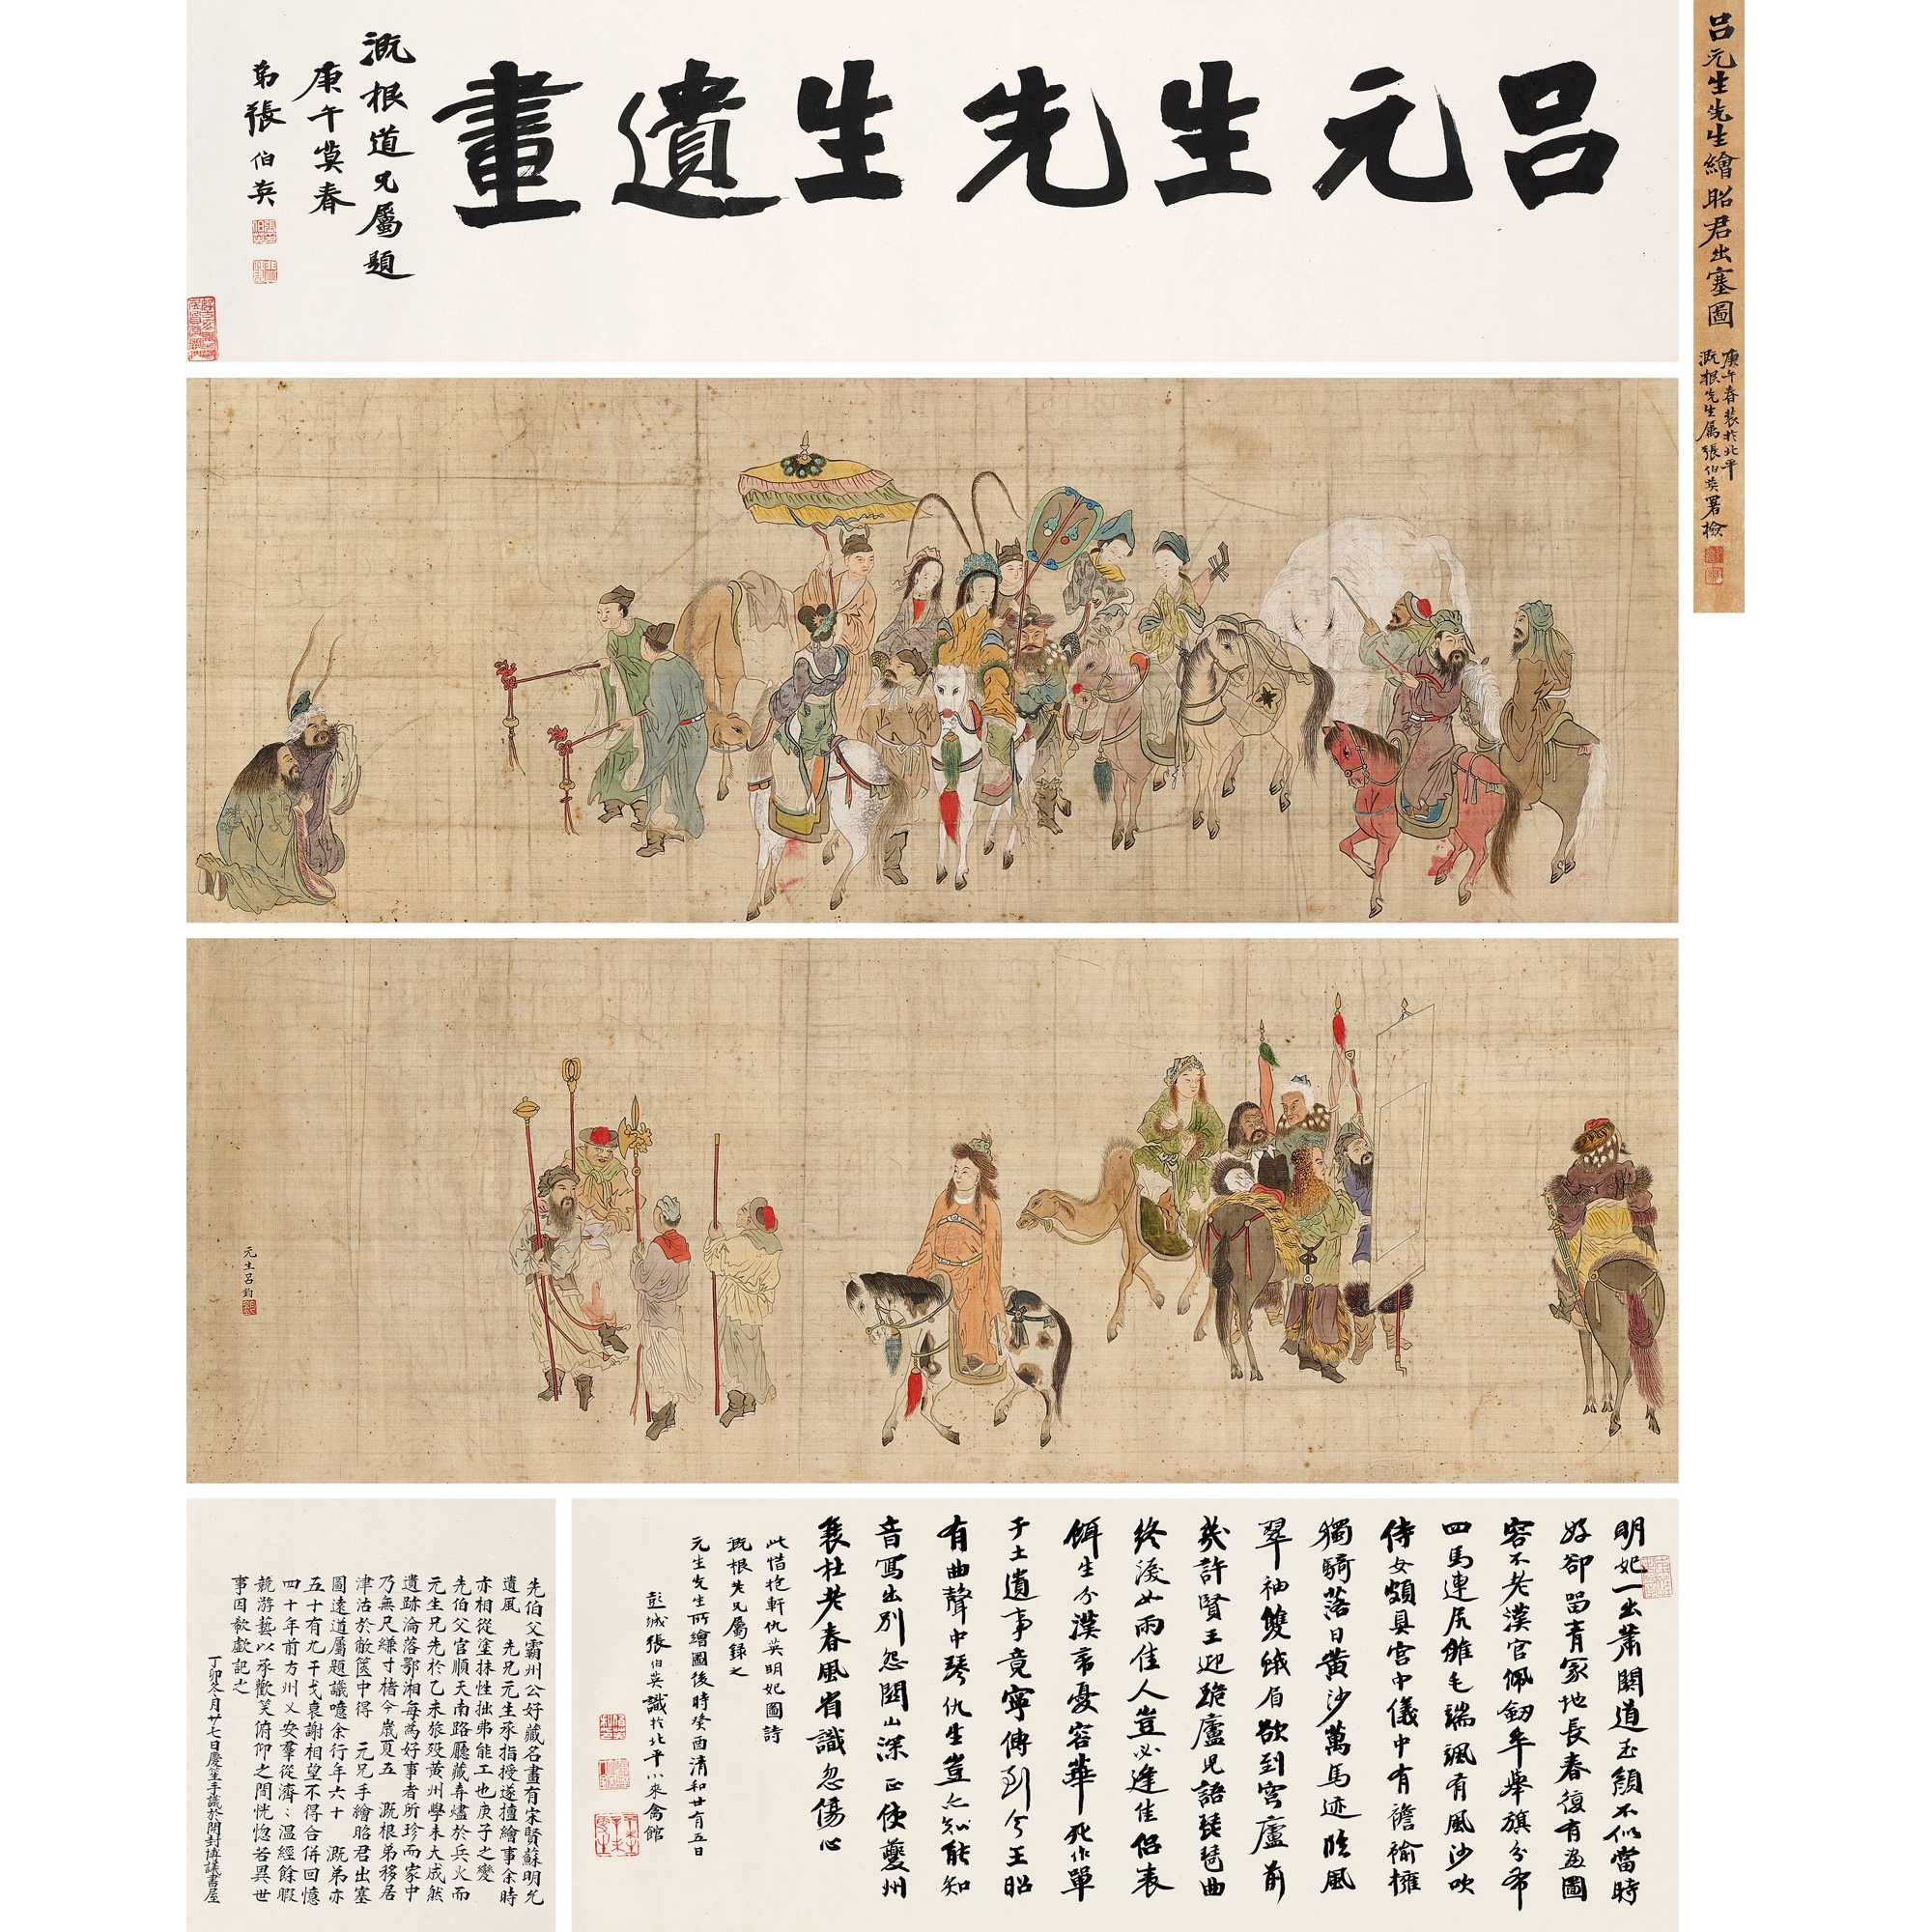 呂元生先生繪昭君出塞圖
庚午春裝於北平
溉根先生属張伯英署檢
呂元生先生遺畫
溉根道兄屬題
庚午莫春
弟張伯英
元生呂鈞
明妃一出蕭關道玉顏不似當時
好卻留青冢地長春復有画圖
容不老漢官佩劒牟舉旗分布
四馬連尻雒毛端颯有風沙吹
侍女頗具宮中儀中有襜褕擁
獨騎落日黃沙萬馬迹臨風
翠袖雙蛾眉欲到穹廬前
幾許賢王迎跪廬兒語琵琶曲
終淚如雨佳人豈必逢佳侶表
餌生分漢帝憂容華死作單
于土遺事竟寧傳到今王昭
有曲聲中琴仇生豈亦知能知
音寫出別怨関山深正使夔州
衰杜老春風省識忽傷心
此惜抱軒仇英明妃圖詩
溉根先兄屬録之
元生先生所繪圖後時癸酉清和廿有五日
彭城張伯英識於北平小來禽館
先伯父霸州公好藏名畫有宋賢蘇明允
遺風　先兄元生承指授遂擅繪事余時
亦相從塗抹性拙弗能工也庚子之變
先伯父官順天南路廳藏弆燼於兵火而
元生兄先於乙未旅歿黃州學未大成然
遺跡淪落鄂湘每為好事者所珍而家中
乃無尺縑寸楮今歲夏五　溉根弟移居
津沽於敝篋中得　元兄手繪昭君出塞
圖遠道屬題識噫余行年六十　溉弟亦
五十有九干戈衰謝相望不得合併回憶
四十年前方州乂安羣從濟〻温經餘暇
競游藝以承歡笑俯仰之間恍惚若異世
事因欷歔記之
丁卯冬月廿七日慶笙手識於開封博議書屋